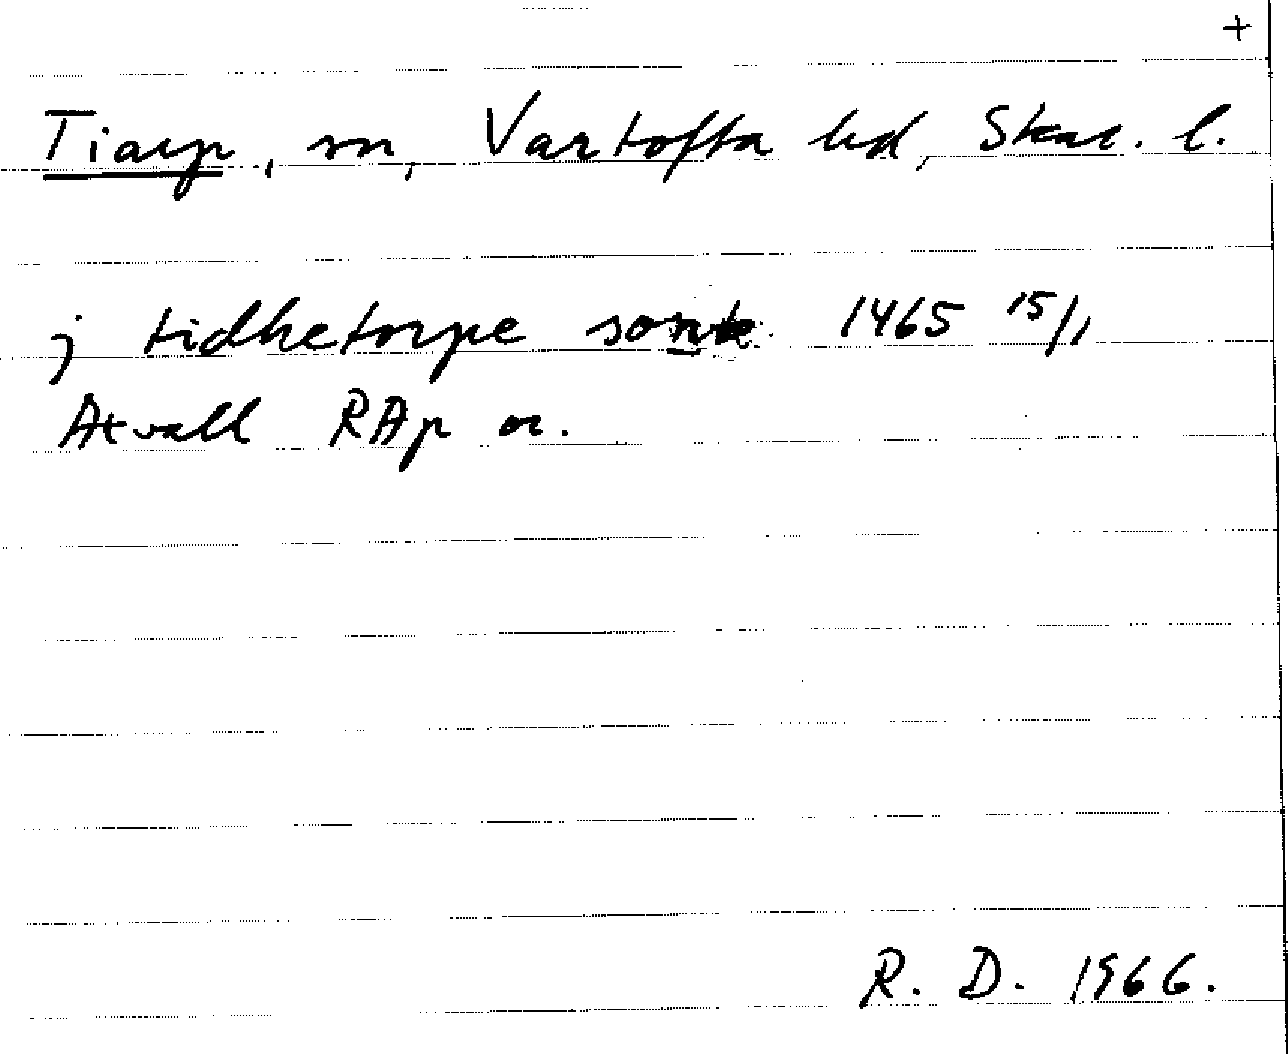 +
Tiarp, sn, Vartofta hd, Skar. l.
j tidhetorpe sonk. 1465 15/1
Atvall RAp or.
R. D. 1966.